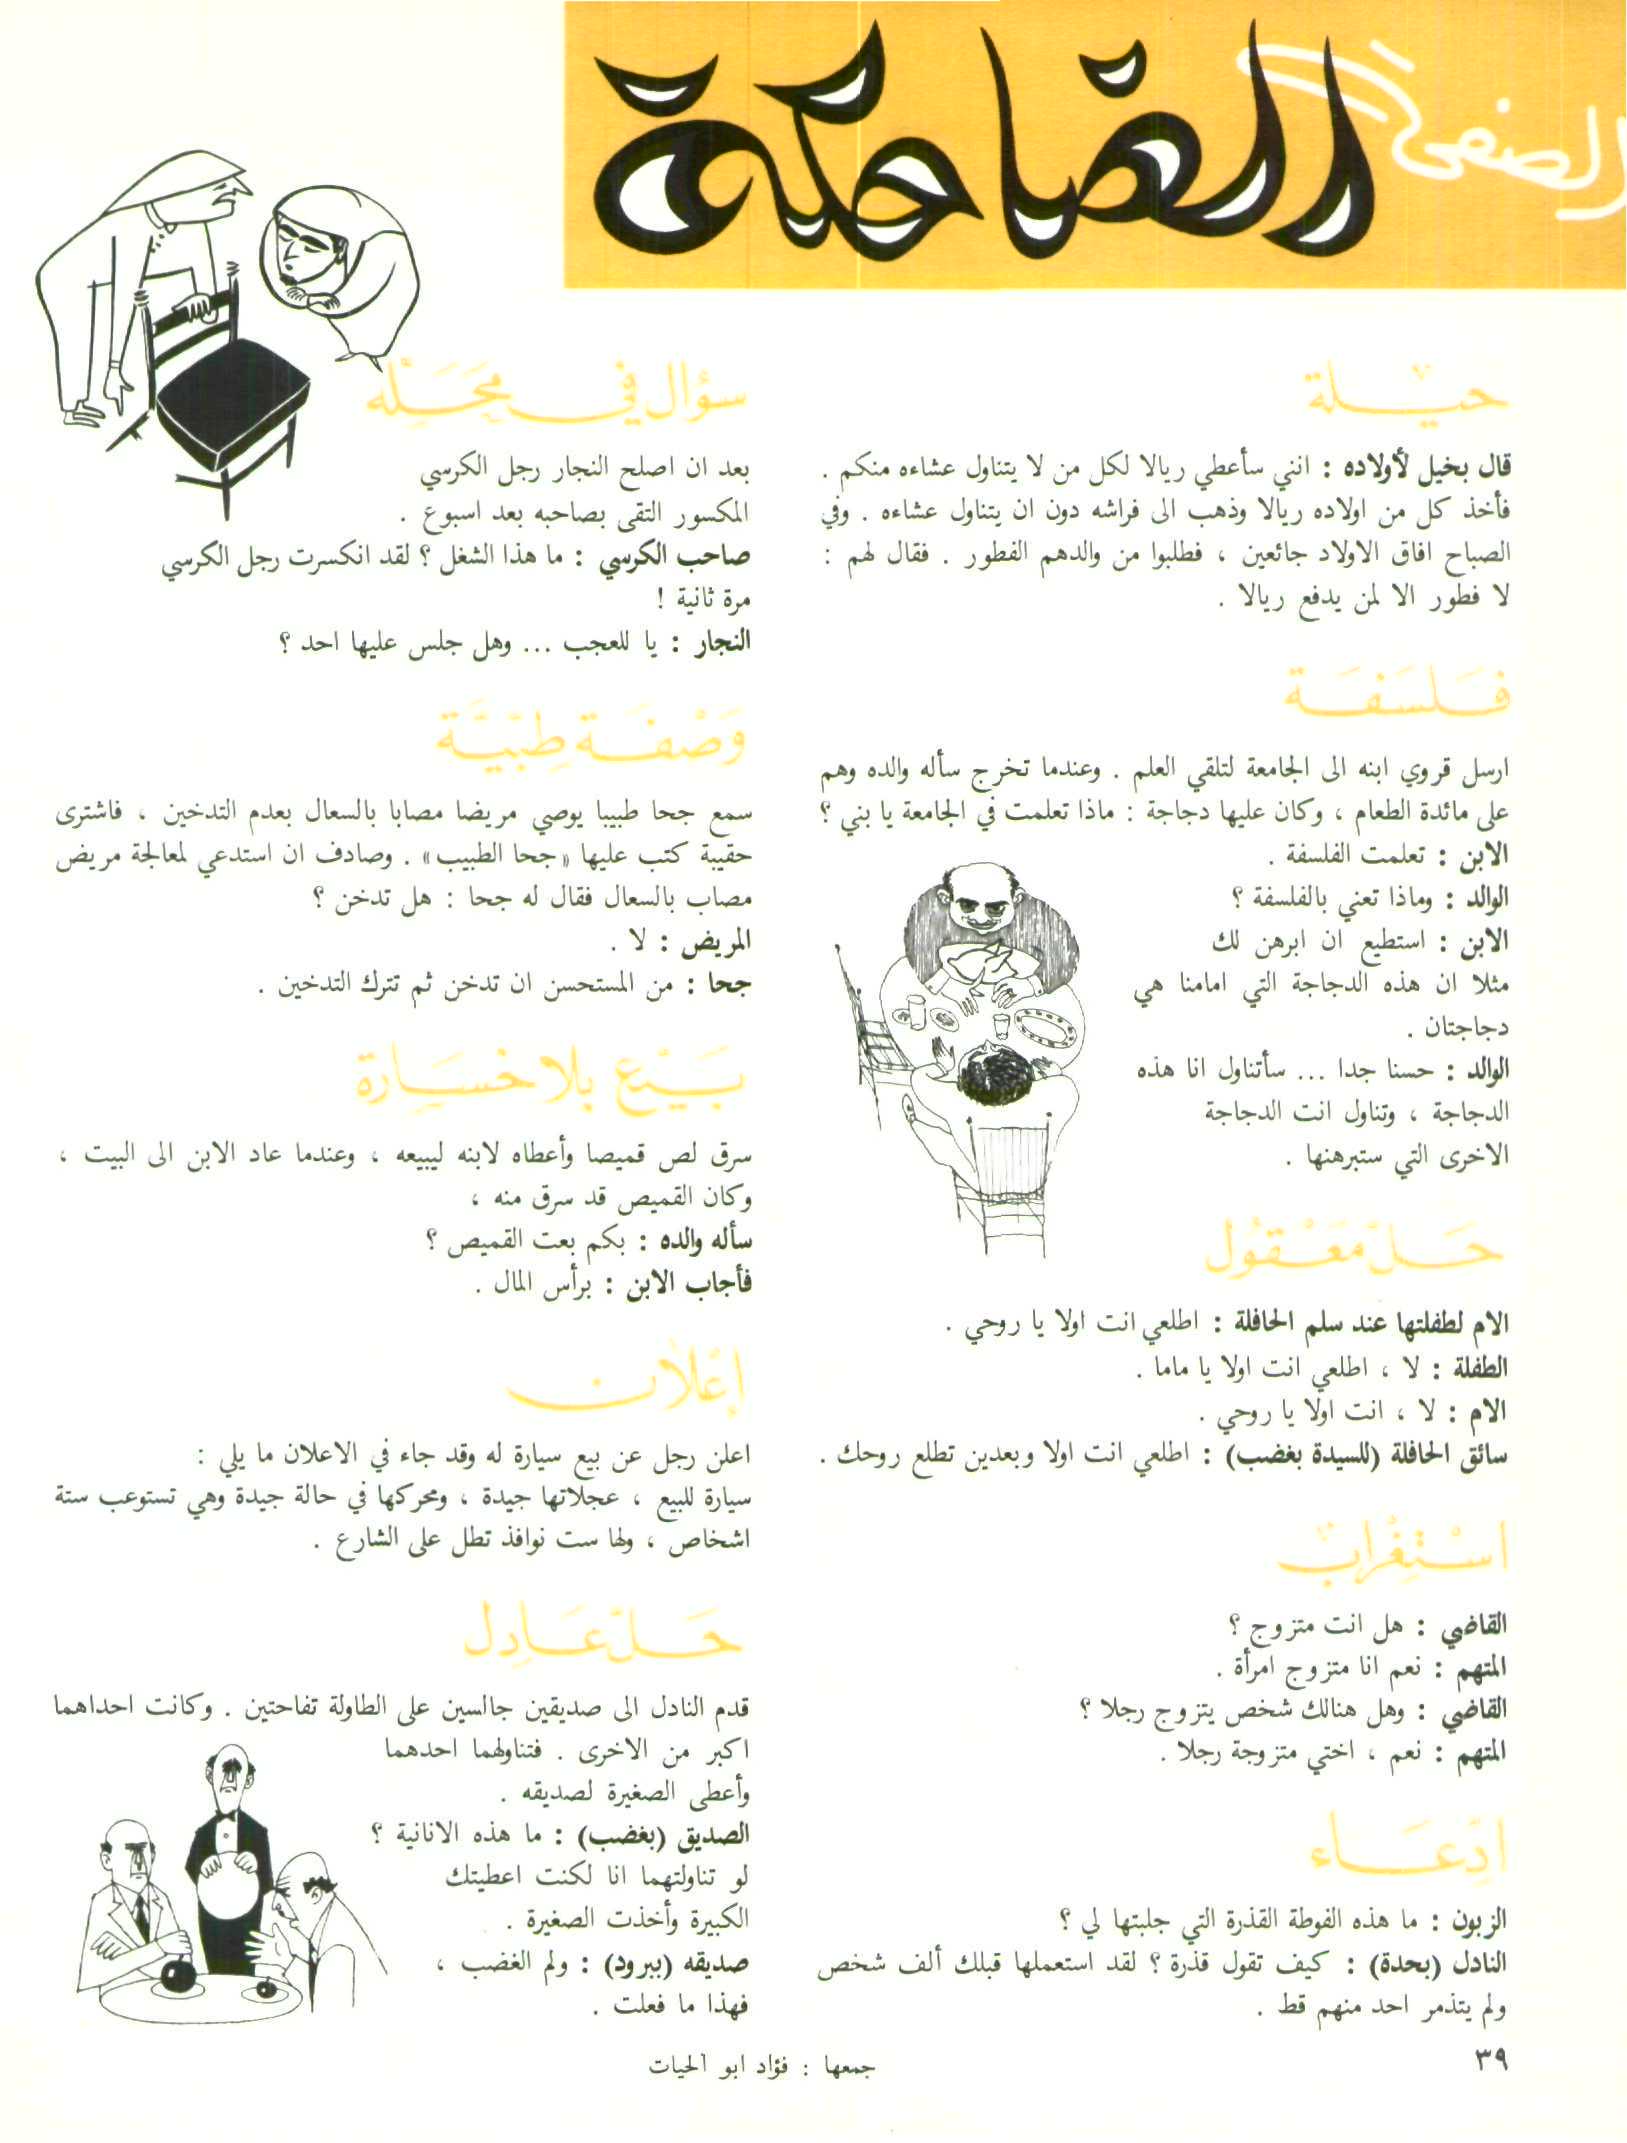 الصفحة
الضاحكة
حيلة
قال بخيل لأولاده : انني سأعطي ريالا لكل من لا يتناول عشاءه منكم .
فأخذ كل من اولاده ريالا وذهب الى فراشه دون ان يتناول عشاءه . وفي
الصباح افاق الاولاد جائعين ، فطلبوا من والدهم الفطور . فقال لهم :
لا فطور الا لمن يدفع ريالا .
فَلسَفَة
ارسل قروي ابنه الى الجامعة لتلقي العلم . وعندما تخرج سأله والده وهم
على مائدة الطعام ، وكان عليها دجاجة : ماذا تعلمت في الجامعة يا بني ؟
الابن : تعلمت الفلسفة .
الوالد : وماذا تعني بالفلسفة ؟
الابن : استطيع ان ابرهن لك
مثلا ان هذه الدجاجة التي امامنا هي
دجاجتان .
الوالد : حسنا جدا ... سأتناول انا هذه
الدجاجة ، وتناول انت الدجاجة
الاخرى التي ستبرهنها .
حَلّ مَعْقُول
الام لطفلتها عند سلم الحافلة : اطلعي انت اولا يا روحي .
الطفلة : لا ، اطلعي انت اولا يا ماما .
الام : لا ، انت اولا يا روحي .
سائق الحافلة (للسيدة بغضب) : اطلعي انت اولا وبعدين تطلع روحك .
اسْتِغْرابٌ
القاضي : هل انت متزوج ؟
المتهم : نعم انا متزوج امرأة .
القاضي : وهل هنالك شخص يتزوج رجلا ؟
المتهم : نعم ، اختي متزوجة رجلا .
ادِّعَاء
الزبون : ما هذه الفوطة القذرة التي جلبتها لي ؟
النادل (بحدة) : كيف تقول قذرة ؟ لقد استعملها قبلك ألف شخص
ولم يتذمر احد منهم قط .
سؤال في مَحَلّه
بعد ان اصلح النجار رجل الكرسي
المكسور التقى بصاحبه بعد اسبوع .
صاحب الكرسي : ما هذا الشغل ؟ لقد انكسرت رجل الكرسي
مرة ثانية !
النجار : يا للعجب ... وهل جلس عليها احد ؟
وَصْفَة طِبّيَّة
سمع جحا طبيبا يوصي مريضا مصابا بالسعال بعدم التدخين ، فاشترى
حقيبة كتب عليها «جحا الطبيب» . وصادف ان استدعي لمعالجة مريض
مصاب بالسعال فقال له جحا : هل تدخن ؟
المريض : لا .
جحا : من المستحسن ان تدخن ثم تترك التدخين .
بَيْع بِلا خسَارة
سرق لص قميصا وأعطاه لابنه ليبيعه ، وعندما عاد الابن الى البيت ،
وكان القميص قد سرق منه ،
سأله والده : بكم بعت القميص ؟
فأجاب الابن : برأس المال .
إعْلان
اعلن رجل عن بيع سيارة له وقد جاء في الاعلان ما يلي :
سيارة للبيع ، عجلاتها جيدة ، ومحركها في حالة جيدة وهي تستوعب ستة
اشخاص ، ولها ست نوافذ تطل على الشارع .
حَلّ عَادِل
قدم النادل الى صديقين جالسين على الطاولة تفاحتين . وكانت احداهما
اكبر من الاخرى . فتناولهما احدهما
وأعطى الصغيرة لصديقه .
الصديق (بغضب) : ما هذه الانانية ؟
لو تناولتهما انا لكنت اعطيتك
الكبيرة وأخذت الصغيرة .
صديقه (ببرود) : ولم الغضب ،
فهذا ما فعلت .
جمعها : فؤاد ابو الحيات
٣٩